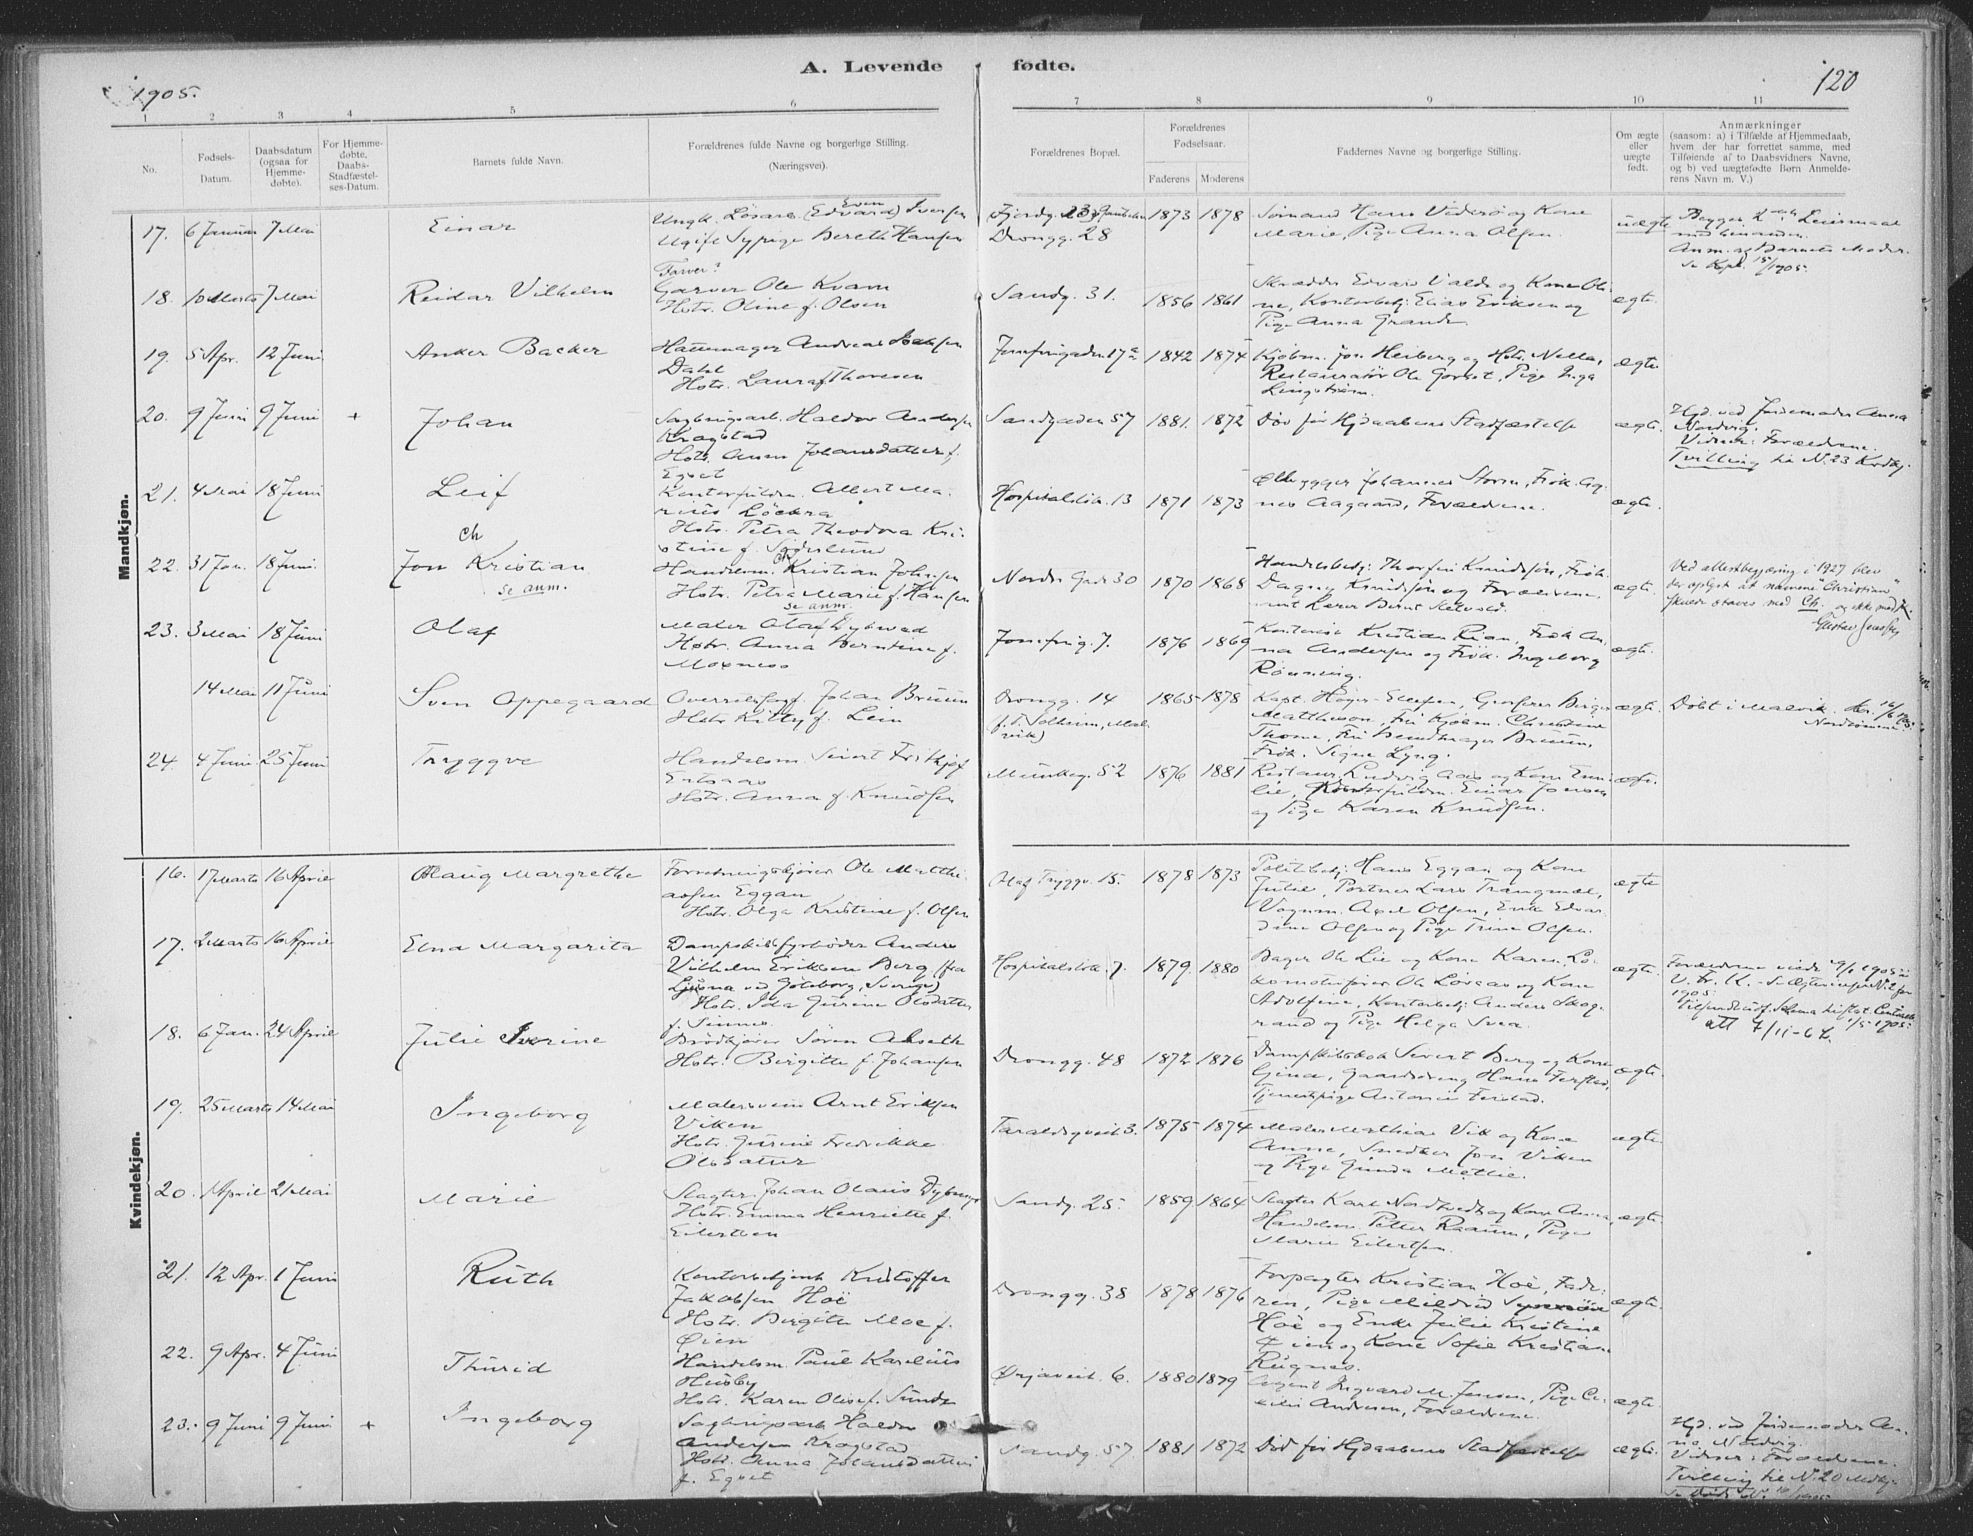 A. Levende fødte.
1905.
120
1 2 3 4 5 6 7 8 9 10 11
No.
Fødsels-Datum.
Daabsdatum (ogsaa for Hjemme-døbte).
For Hjemme-døbte, Daabs-Stadfæstel-ses-Datum.
Barnets fulde Navn.
Forældrenes fulde Navne og borgerlige Stilling.
(Næringsvei).
Forældrenes Bopæl.
Forældrenes Fødselsaar.
Faderens Moderens
Faddernes Navne og borgerlige Stilling.
Om ægte eller uægte født.
Anmærkninger
(saasom: a) i Tilfælde af Hjemmedaab,
hvem der har forrettet samme, med
Tilføiende af to Daabsvidners Navne,
og b) ved uægtefødte Børn Anmelde-
rens Navn m. V.)
Mandkjøn.
17. 6 Januar 7 Mai Einar
Ungk. Løsarb. (Edvard) Even Iversen
Ugift Sypige Bereth Hansen
Fjordg. 23
Drongg. 28
1873 1878
Sømand Hans Viderø og Kone
Marie, Pige Anna Olsen.
uægte
Begges 2 Leiermaal
med hinanden.
Anm. af Barnets Moder.
18. 10 Marts 7 Mai Reidar Vilhelm
Farver?
Garver Ole Kvam
Hstr. Oline f. Olsen
Sandg. 31. 1856 1861
Skrædder Edvard Valde og Kone Oli-
ne, Kontorbetj. Elias Eriksen og
Pige Anna Grande
ægte.
19. 5 Apr. 12 Juni Anker Backer
Hattemager Andreas Isaksen
Dahl
Hstr. Laura f. Thoresen
17 a 1842 1874
Kjøbm. Jon Heiberg og Hstr. Nella,
Restauratør Ole Gorset, Pige Inga
Lingstrøm.
ægte
20. 9 Juni 9 Juni + Johan
Sagbrugsarb. Haldor Andersen
Kragstad
Hstr. Anna Johansdatter f.
Egset
Sandgaden 57 1881. 1872
Død før Hjdaabens Stadfæstelse
ægte.
Hjd. ved Jordemoder Anna
Nordvig.
Vidner: Forældrene.
Tvilling til N. 23 Kvdkj.
21. 4 Mai 18 Juni Leif
Kontorfuldm. Albert Ma-
rius Löchra
Hstr. Petra Theodora Kri-
stine f. Søderlund
Hospitalsløk. 13 1871 1873
Ølbrygger Johannes Storm, Frøk. Ag-
nes Aagaard, Forældrene.
ægte.
22. 31 Jan. 18 Juni. Jon Kristian
Ch
se anm.
Handelsm. Kristian Johnsen
Ch
Hstr. Petra Marie f. Hansen
se anm.
Nordre Gade 30 1870 1868
Handelsbetj. Thorfin Knudsøn, Frøk.
Dagny Knudsøn og Forældrene,
samt Lærer Bernt
ægte.
Ved attestbegjæring i 1927 blev
der oplyst at navnene "Christian"
skulde staves med Ch. og ikke med K.
Gustav Jenssen
23. 3 Mai 18 Juni Olaf
Maler Olaf Dybwad
Hstr. Anna Berntine f.
Moxness
7. 1876 1869
Kontorist Kristian Rian, Frøk. An-
na Andersen og Frøk. Ingeborg
Rønning.
ægte.
14 Mai 11 Juni Sven Oppegaard
Overretssagf. Johan Bruun
Hstr. Kitty f. Lein
Drongg. 14
1865 1878
Kapt. Høyer-Ellefsen, Grosserer Birger
Matthesson, Fru Kjøbm. Christine
Thome, Fru Bruun,
Frøk. Signe Lyng.
ægte.
Døbt i Malvik.
24. 4 Juni 25 Juni Tryggve
Handelsm. Sivert Frithjof
Ertsaas
Hstr. Anna f. Knudsen
Munkeg. 52 1876 1881
Restaur. Ludvig Aas og Kone Emi-
lie, Kontorfuldm. Einar Jensen
og Pige Karen Knudsen.
ægte.
Kvindekjøn.
16. 17 Marts 16 April Olaug Margrethe
Forretningskjører Ole Matthi-
assen Eggan
Hstr. Olga Kristine f. Olsen
Olaf Tryggv. 15. 1878 1873
Politibetj. Hans Eggan og Kone
Julie, Portner Lars Trangmæl,
Vognm. Axel Olsen, Enke Edvar-
dine Olsen og Pige Trine Olsen.
ægte
17. 2 Marts 16 April Elna Margarita
Dampskibsfyrbøder Anders
Vilhelm Eriksen Berg (fra
Ljusna ved Göteborg, Sverige)
Hstr. Ida Gurine Olsdatter
f. Sinnes
Hospitalsløk. 7. 1879. 1880
Bager Ole Lie og Kone Karen, Lo-
komotivfører Ole Løvaas og Kone
Adolfine, Kontorbetj. Anders Skog-
rand og Pige Helga Svea.
ægte.
Forældrene viede 1905 i
V. Fr. K.
1905.
att 7/11-62.
18. 6 Jan. 24 April Julie Iverine
Brødkjører Søren Alseth
Hstr. Birgitte f. Johansen
Drongg. 48 1872 1876
Dampskibskok Sivert Berg og Kone
Gina, Gaardsdreng Hans Ferstad,
Tjenestepige Antonie Ferstad.
ægte.
19. 25 Marts 14 Mai Ingeborg
Malersvein Arnt Eriksen
Viken
Hstr. Gurine Fredrikke
Olsdatter
Taraldsgveit 3. 1875 1874
Maler Mathias Vik og Kone
Anne, Snedker Jon Viken
og Pige Gunda Methie.
ægte
20. 1 April 21 Mai Marie
Slagter Johan Olaus
Hstr. Emma Henriette f.
Eilertsen
Sandg. 25. 1859 1864
Slagter Karl Nordtvedt og Kone Anna,
Handelsm. Petter Raaum, Pige
Marie Eilertsen.
ægte.
21. 12 Apr. 1 Juni Ruth
Kontorbetjent Kristoffer
Jakobsen Hoë
Hstr. Bergitte Moe f.
Øien
Drongg. 38 1878 1876
Forpagter Kristian Hoë, Fade-
ren, Pige Mildrid
Hoë og Enke Julie Kristine
Øien og Kone Sofie Kristian
Rugnes.
ægte.
22. 9 Apr. 4 Juni Thurid
Handelsm. Paul Karelius
Husby
Hstr. Karen Olise f. Sunde
Ørjaveit. 6. 1880 1879
Agent Ingvard M. Jensen, Pige Ce-
cilie Andresen, Forældrene.
ægte.
23. 9 Juni 9 Juni + Ingeborg
Sagbrugsarb. Haldor
Andersen Kragstad
Hstr. Anna Johansdatter
f. Egset
Sandg. 57 1881 1872
Død før Hjdaabens Stadfæstelse
ægte.
Hjd. ved Jordemoder An-
na Nordvig.
Vidner: Forældrene.
Tvilling til N. 20 Mdkj.